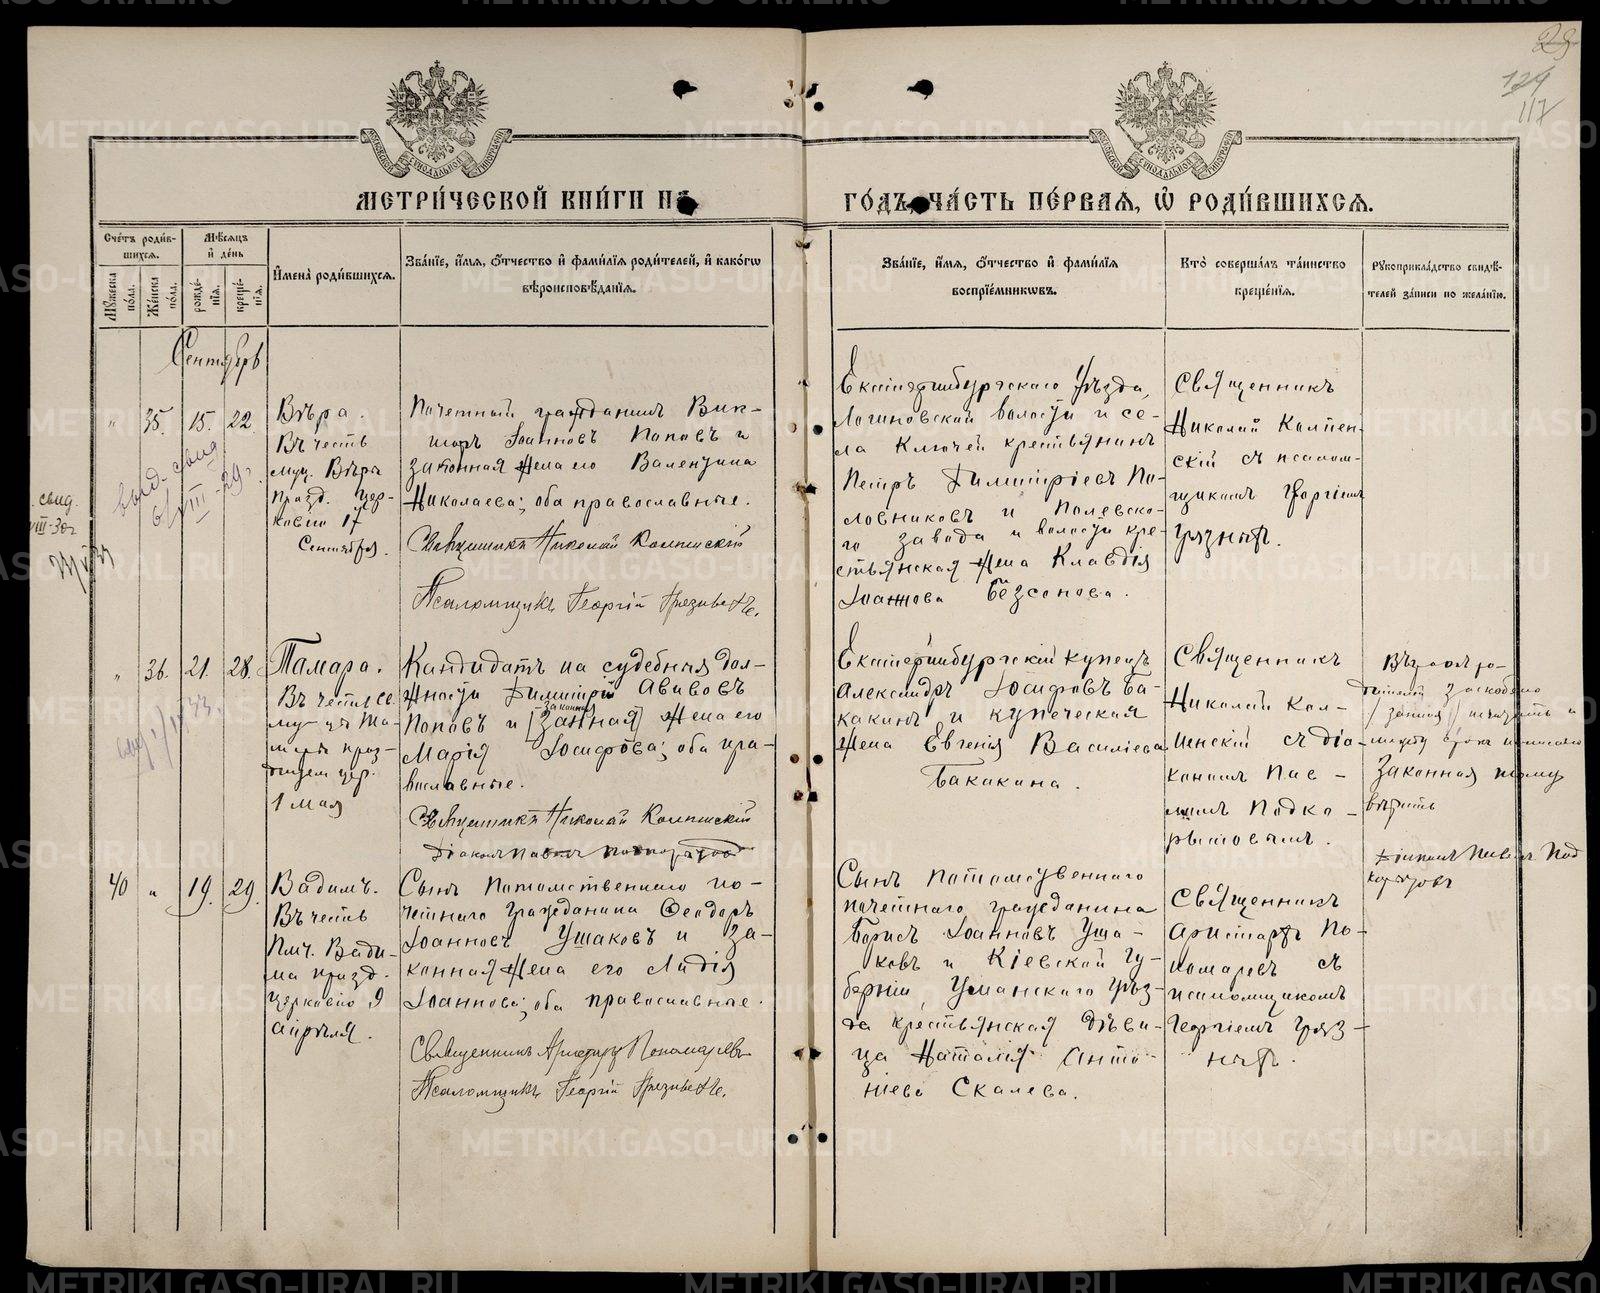 29
129
117
МЕТРИ́ЧЕСКОЙ КНИ́ГИ НА
ГО́ДЪ, ЧА́СТЬ ПЕ́РВАЯ, Ѡ РОДИ́ВШИХСЯ.
Сче́тъ роди́в-
шихся.
Мꙋжеска по́ла.
Же́нска по́ла.
Мѣ́сяцъ и де́нь
рожде́-
нїя.
креще́-
нїя.
И҆мена̀ роди́вшихся.
Зва́нїе, и҆́мя, ѻ҆́тчество и҆ фами́лїя роди́телей, и҆ како́гѡ
вѣроисповѣ́данїя.
Зва́нїе, и҆́мя, ѻ҆́тчество и҆ фами́лїя
воспрїе́мникѡвъ.
Кто̀ соверша́лъ та́инство
креще́нїя.
Рꙋкоприкла́дство свидѣ́-
телей за́писи по жела́нїю.
Сентябрь
" 35. 15. 22.
Вѣра.
Въ честь
муч. Вѣры
празд. цер-
ковію 17
Сентября.
Почетный гражданинъ Вик-
торъ Іоанновъ Поповъ и
законная жена его Валентина
Николаева; оба православные.
Священникъ Николай Колпенскій
Псаломщикъ Георгій Грязныхъ.
Екатеринбургскаго уѣзда,
Логиновской волости и се-
ла Ключей крестьянинъ
Петръ Димитріевъ По-
ловниковъ и Полевско-
го завода и волости кре-
стьянская жена Клавдія
Іоаннова Безсонова.
Священникъ
Николай Колпен-
скій съ псалом-
щикомъ Георгіемъ
Грязныхъ.
выд. свид.
6/VIII-29
свид.
VIII-30
" 36. 21. 28.
Тамара.
Въ честь се-
му
празд-
цер.
1 мая
Кандидатъ на судебныя дол-
жности Димитрій Авивовъ
законная
Поповъ и [занная] жена его
Марія Іосифова; оба пра-
вославные.
Священникъ Николай Колпенскій
Діаконъ Павелъ Подкорытовъ
Екатеринбургскій купецъ
Александръ Іосифовъ Ба-
какинъ и купеческая
жена Евгенія Василіева
Бакакина.
Священникъ
Николай Кол-
пенскій съ діа-
кономъ Пав-
ломъ Подко-
рытовымъ.
законная тому
вѣрить
Діаконъ Павелъ Под
корытовъ
40 " 19. 29.
Вадимъ.
Въ честь
Пмч. Вади-
ма празд.
церковію 9
апрѣля.
Сынъ потомственнаго по-
четнаго гражданина Феодоръ
Іоанновъ Ушаковъ и за-
конная жена его Лидія
Іоаннова; оба православные.
Священникъ Аристархъ Пономаревъ
Псаломщикъ Георгій Грязныхъ.
Сынъ потомственнаго
почетнаго гражданина
Борисъ Іоанновъ Уша-
ковъ и Кіевской гу-
берніи, Уманскаго уѣз-
да крестьянская дѣви-
ца Наталія Анто-
ніева Скалева.
Священникъ
Аристархъ По-
номаревъ съ
псаломщикомъ
Георгіемъ Гряз-
ныхъ.